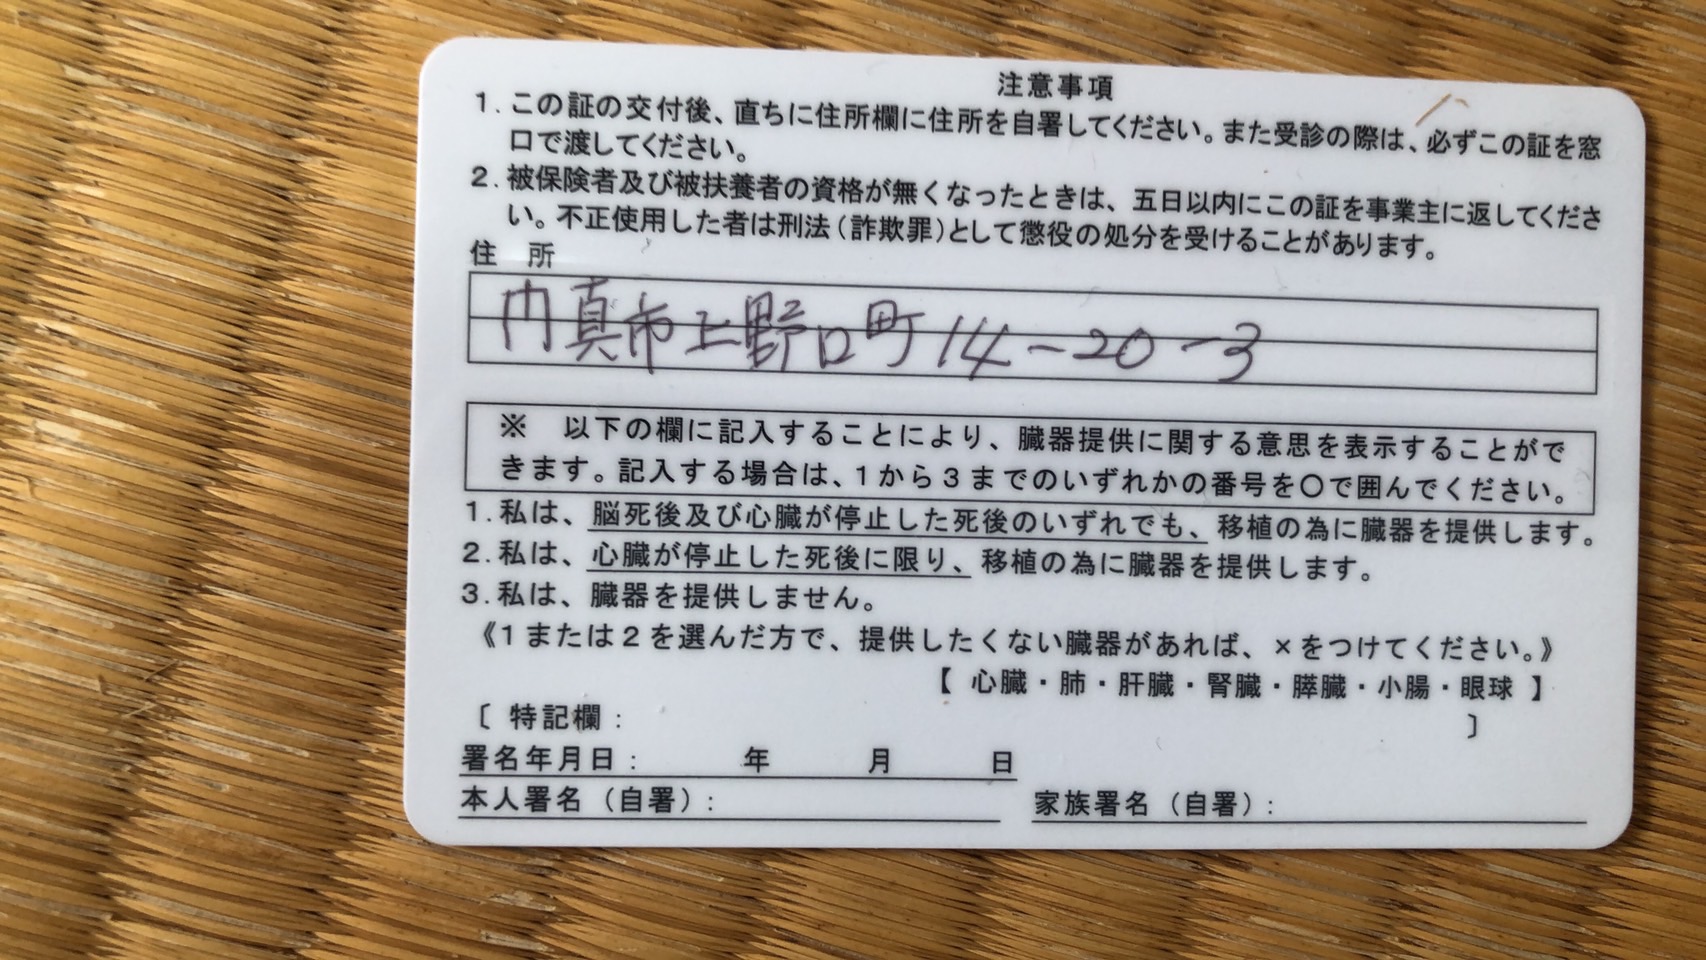 注意事項
1.この証の交付後、直ちに住所欄に住所を自署してください。また受診の際は、必ずこの証を窓
口で渡してください。
2.被保険者及び被扶養者の資格が無くなったときは、五日以内にこの証を事業主に返してくださ
い。不正使用した者は刑法(詐欺罪)として懲役の処分を受けることがあります。
住 所
門真市上野口町14-20-3
※ 以下の欄に記入することにより、臓器提供に関する意思を表示することがで
きます。記入する場合は、1から3までのいずれかの番号を〇で囲んでください。
1.私は、脳死後及び心臓が停止した死後のいずれでも、移植の為に臓器を提供します。
2.私は、心臓が停止した死後に限り、移植の為に臓器を提供します。
3.私は、臓器を提供しません。
《1または2を選んだ方で、提供したくない臓器があれば、×をつけてください。》
【 心臓・肺・肝臓・腎臓・膵臓・小腸・眼球 】
〔 特記欄: 〕
署名年月日: 年 月 日
本人署名(自署): 家族署名(自署):